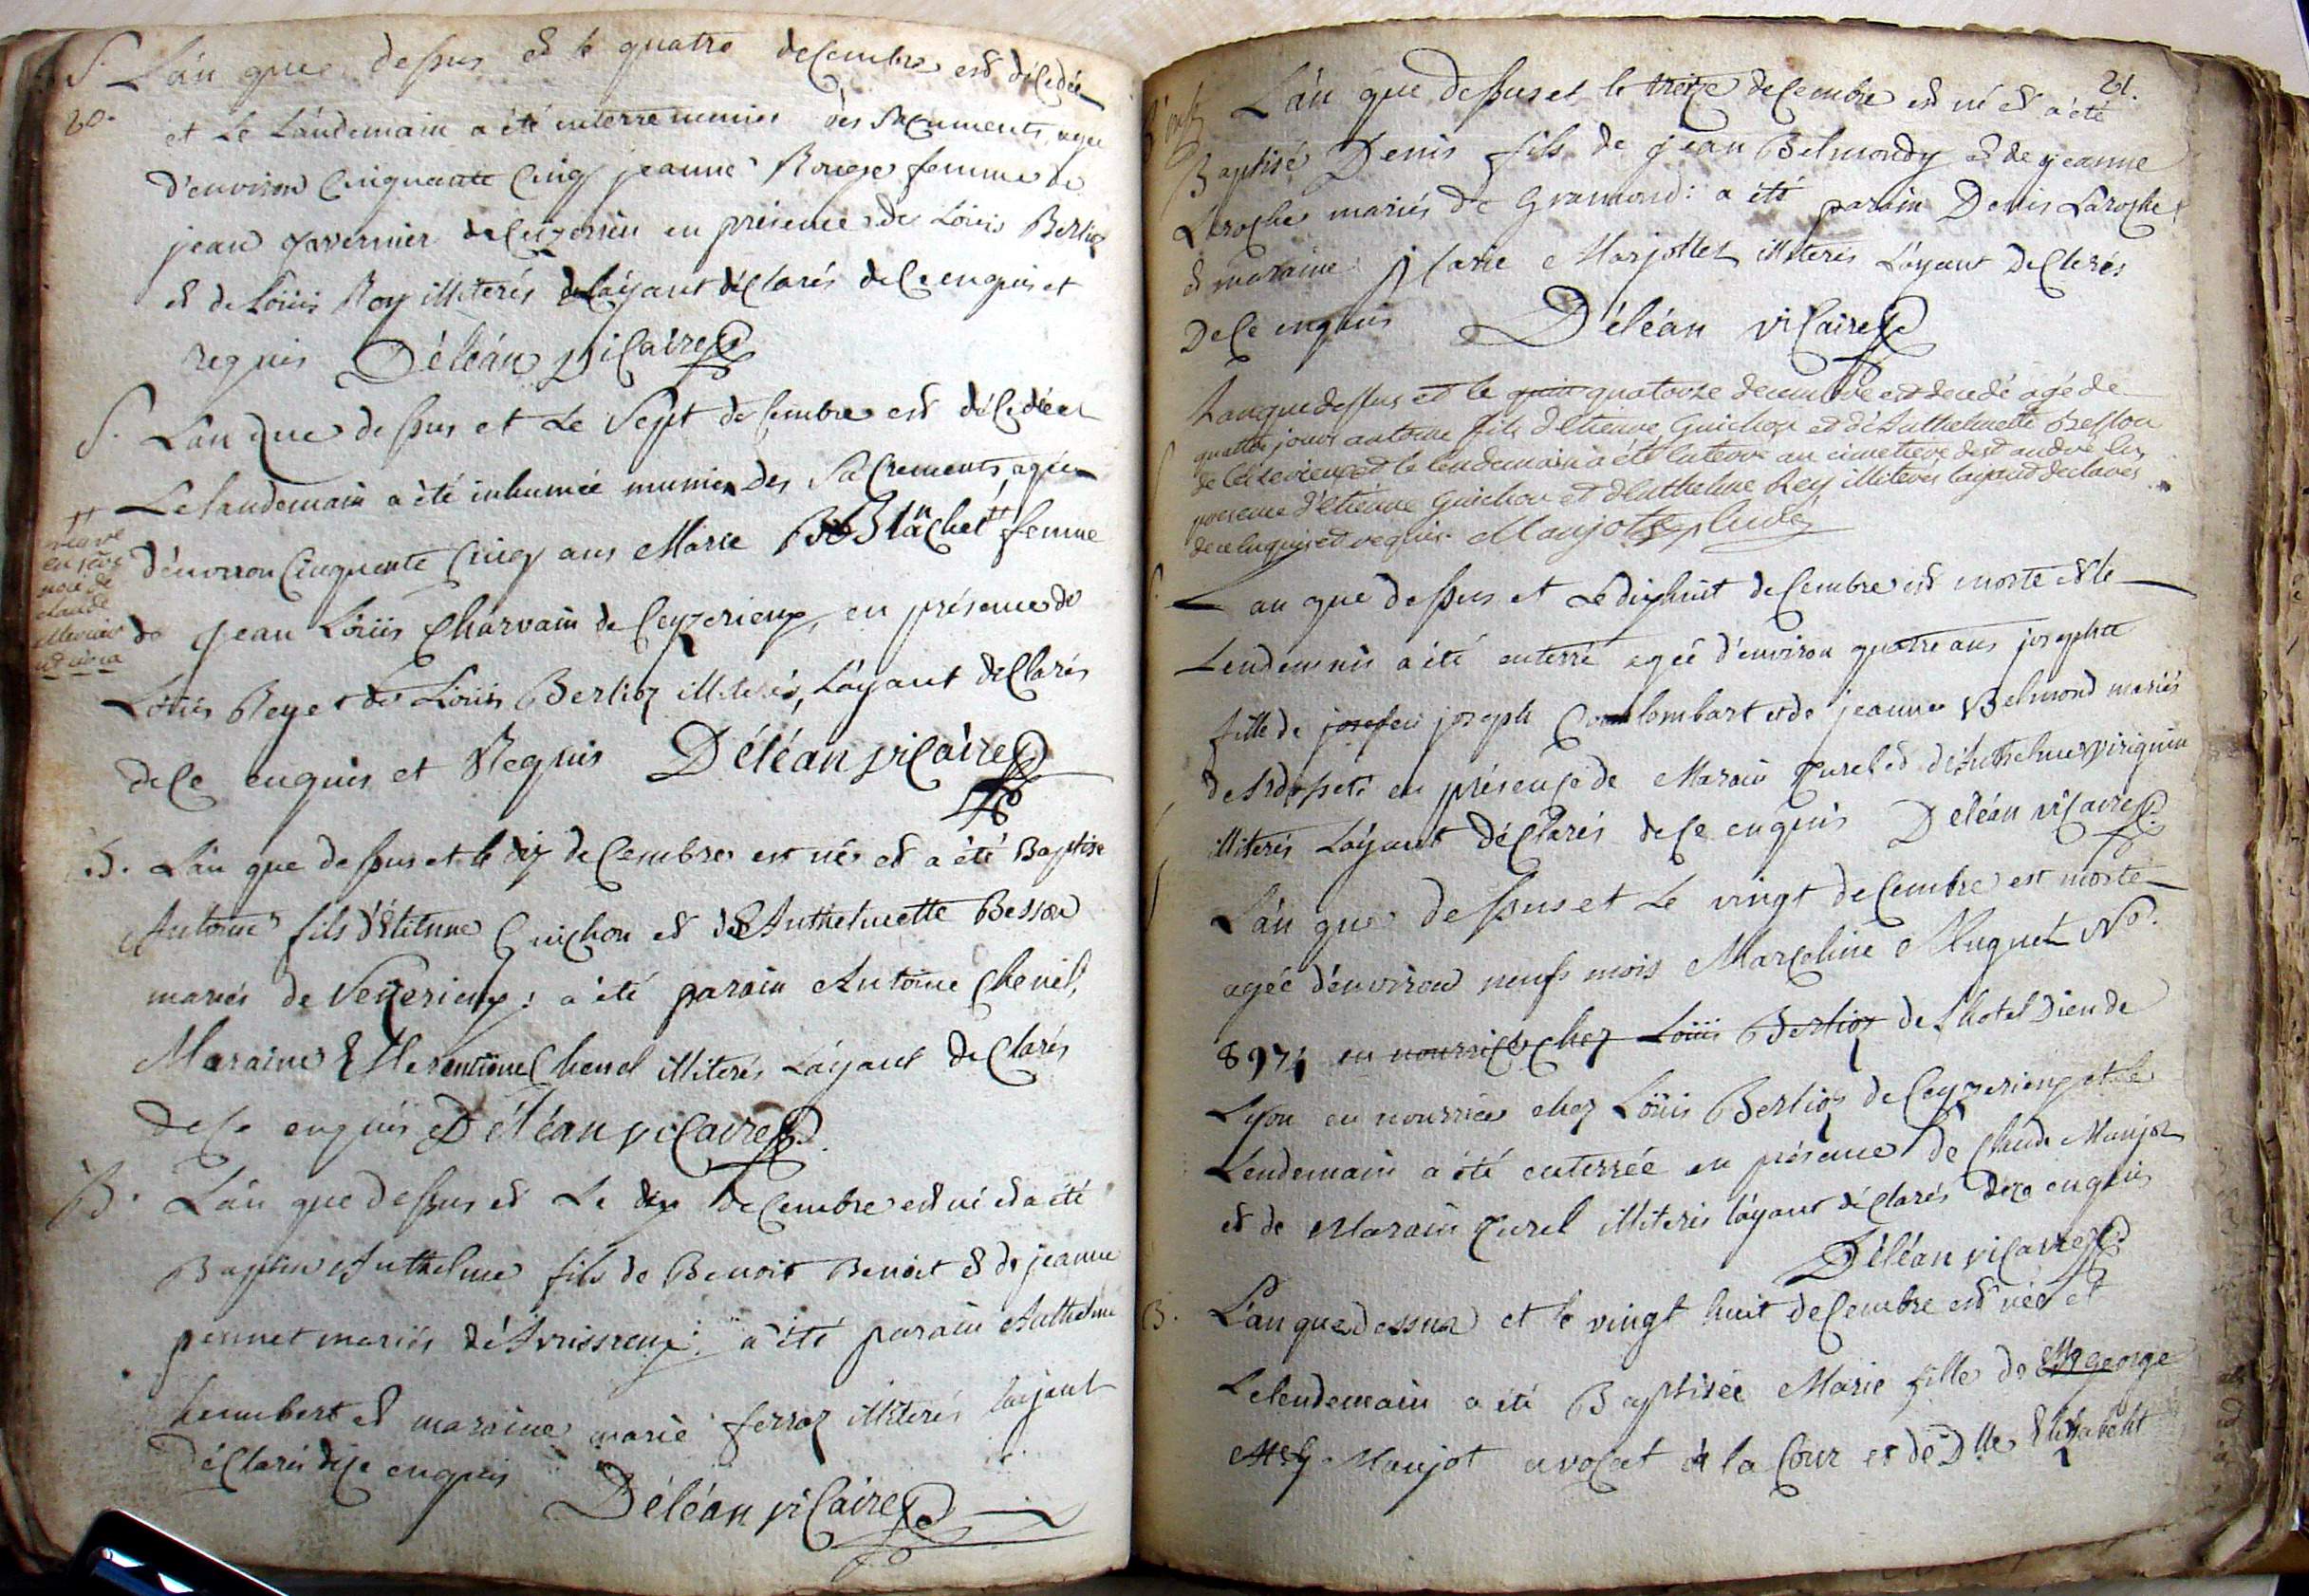 S. L'an que dessus et le quatre decembre est décédée
20. et le Landemain a été enterre munie des Sacrements, agée
d'environ cinquante cinq jeanne Rouge femme de
jean Gavernier de Ceyzerieu en présence de Loüis Berlioz
et de Loüis Roy illiterés Layant déclarés de ce enquis et
requis Déléan vicaire
S. L'an que dessus et Le Sept decembre est décédée et
Le landemain a été inhumée munie des Sacrements, agée
d'environ Cinquante Cinq ans Marie Blachet ╫ femme
╫ veuve en 1eres nocé de claude
de jean Loüis Charvain de Ceyzerieux, en présence de
Loüis Reye et de Loüis Berlioz illiterés, Layant déclarés
de ce enquis et Requis Déléan vicaire
B. L'an que dessus et le dix decembre est né et a été Baptisé
Antoine fils d'Etienne Guichon et de Anthelmette Besson
mariés de Ceyzerieux: a été parain Antoine Chenel,
Maraine Chenel illiterés Layant déclarés
de ce enquis Déléan vicaire
B. L'an que dessus et Le dix decembre est né et a été
Baptisé Anthelme fils de Benoit Benoit et de jeanne
pennet mariés d'Avrissieux: a été parain Anthelme
humbert et maraine marie ferroz illiterés layant
déclarés de ce enquis Déléan vicaire
21.
L'an que dessus et le treize decembre est né et a été
Baptisé Denis fils de jean Belmondy et de jeanne
Laroche mariés de Gramond: a été parain Denis Laroche
et maraine Marie Marjollet illiterés Layant déclarés
De ce enquis Déléan vicaire
Lan que dessus et le quin quatorze decembre est decedé agé de
quatre jours antoine fils d'Etienne Guichon et d'Anthelmette Besson
de Ceyzerieux et le lendemain a été enterré au cimetiere de st andré en
presence d'Etienne Guichon et d'Anthelme Rey illiterés layant declarés
de ce enquis et requis. Maujot
S. L'an que dessus et Le dixhuit decembre est morte et le
Lendemain a été enterré agée d'environ quatre ans josephte
fille de joseph Coulombart et de jeanne Belmond mariés
d'Ardosset: en présence de Marain Curel et d'Anthelme virignin
illiterés Layant déclarés de ce enquis Déléan vicaire
L'an que dessus et Le vingt decembre est morte
agée d'environ neufs mois Marceline Huguet No.
8974 en nourrice chez Loüis Berlioz de L'hotel Dieu de
Lyon en nourrice chez Loüis Berlioz de Ceyzerieux et le
Lendemain a été enterrée en présence de Claude Maujot
et de Marain Curel illiterés layant déclarés de ce enquis
Déléan vicaire
B. L'an que dessus et le vingt huit decembre est née et
Le lendemain a été Baptisée Marie fille de Mr george
Maujot avocat à la Cour et de Dlle Elisabeht